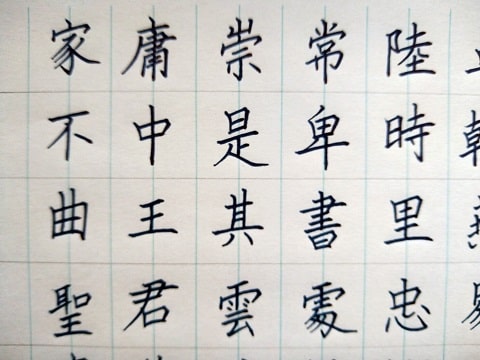 陸時里忠
常卑書處
崇是其雲
庸中王君
家不曲聖